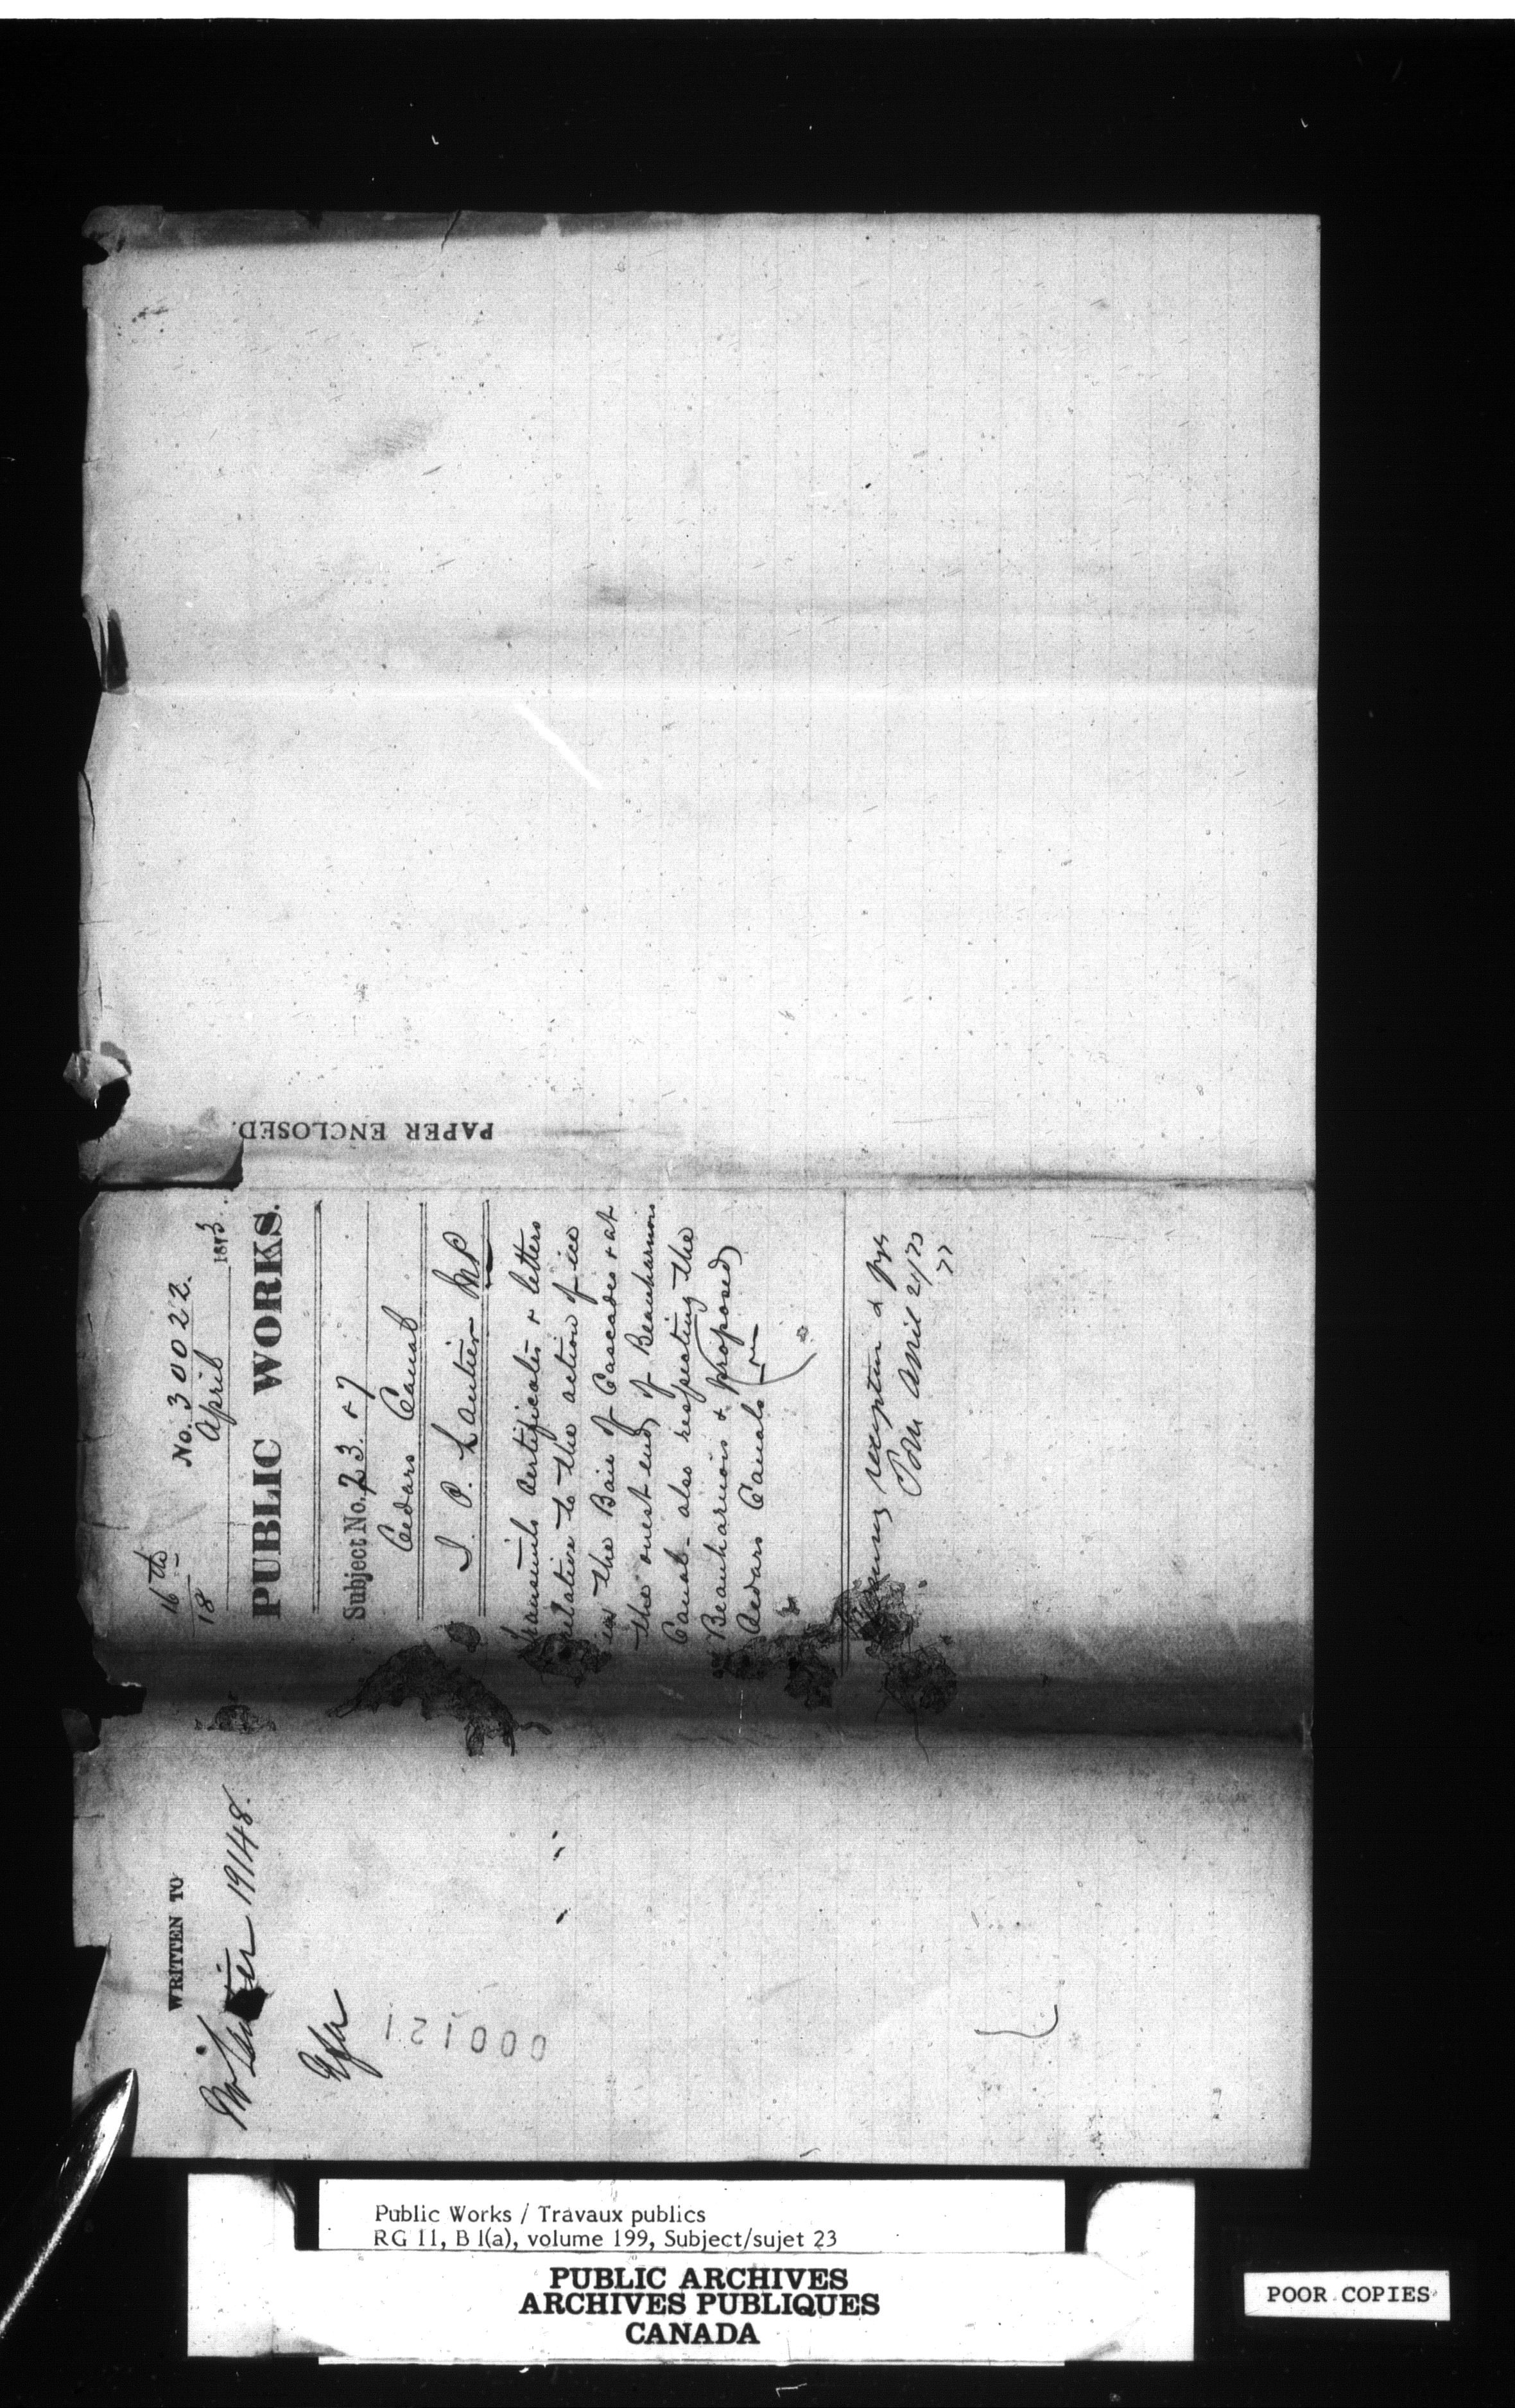 No. 30022.
16th
18
April 1873.
PUBLIC WORKS.
Subject No. 23 + 7
Cedars Canal
J. P. Lantier MP
Transmits Certificates + letters
relation to the action of ice
in the Baie of Cascades + at
the ouest end of Beauharnois
Canal - also respecting the
Beauharnois + proposed
Cedars Canals
reception &
April 21/73
PAPER ENCLOSED.
WRITTEN TO
Mr Lantier 19148.
000121
Public Works / Travaux publics
RG 11, B 1(a), volume 199, Subject/sujet 23
PUBLIC ARCHIVES
ARCHIVES PUBLIQUES
CANADA
POOR COPIES